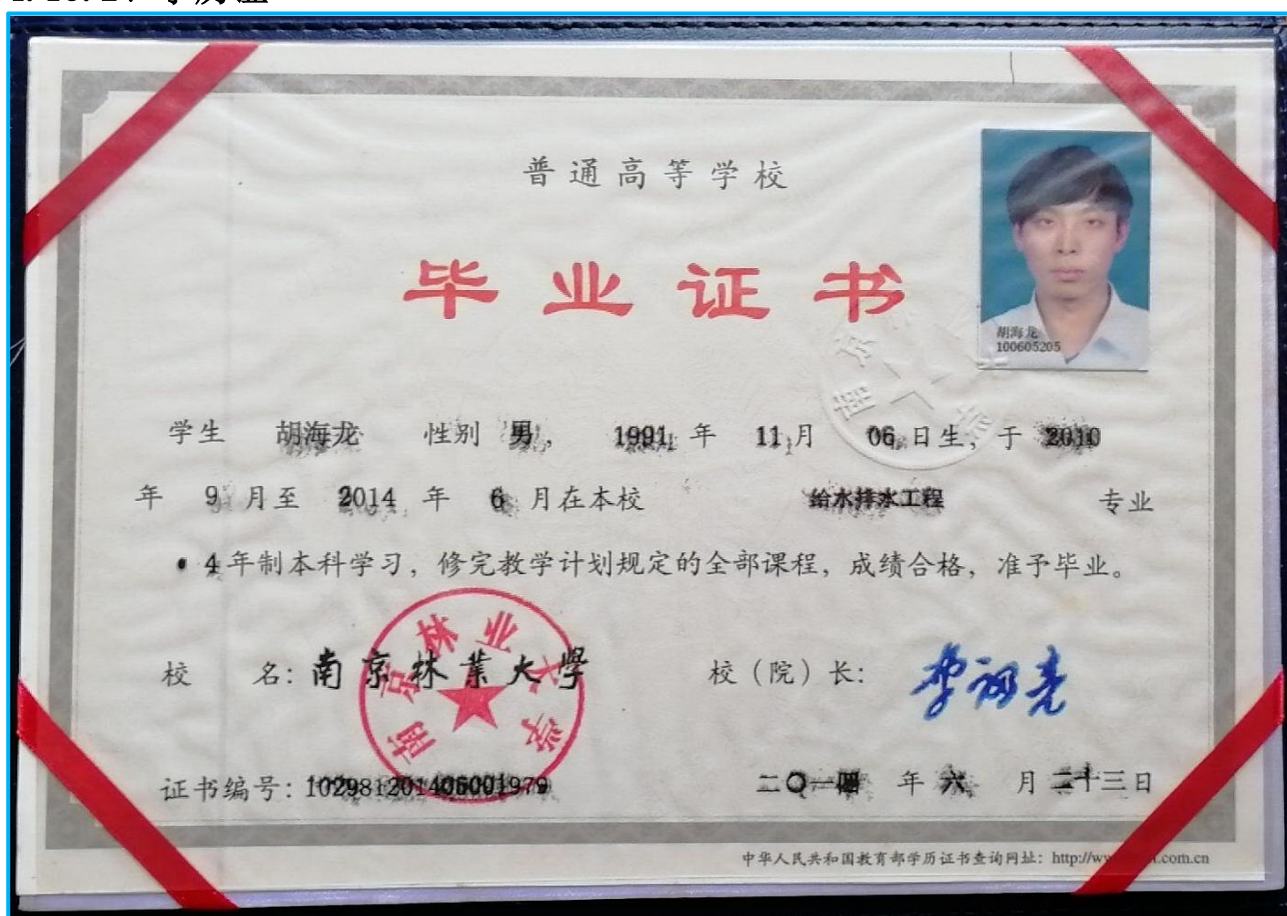 普通高等学校
毕业证书
胡海龙
100605205
学生 胡海龙 性别 男, 1991 年 11 月 06 日生, 于 2010
年 9 月至 2014 年 6 月在本校 给水排水工程 专业
4 年制本科学习, 修完教学计划规定的全部课程, 成绩合格, 准予毕业。
南京林业大学
校 名: 南京林業大學 校（院）长:
证书编号: 102981201405001979 二〇一四 年 六 月 二十三日
中华人民共和国教育部学历证书查询网址: http://w .com.cn